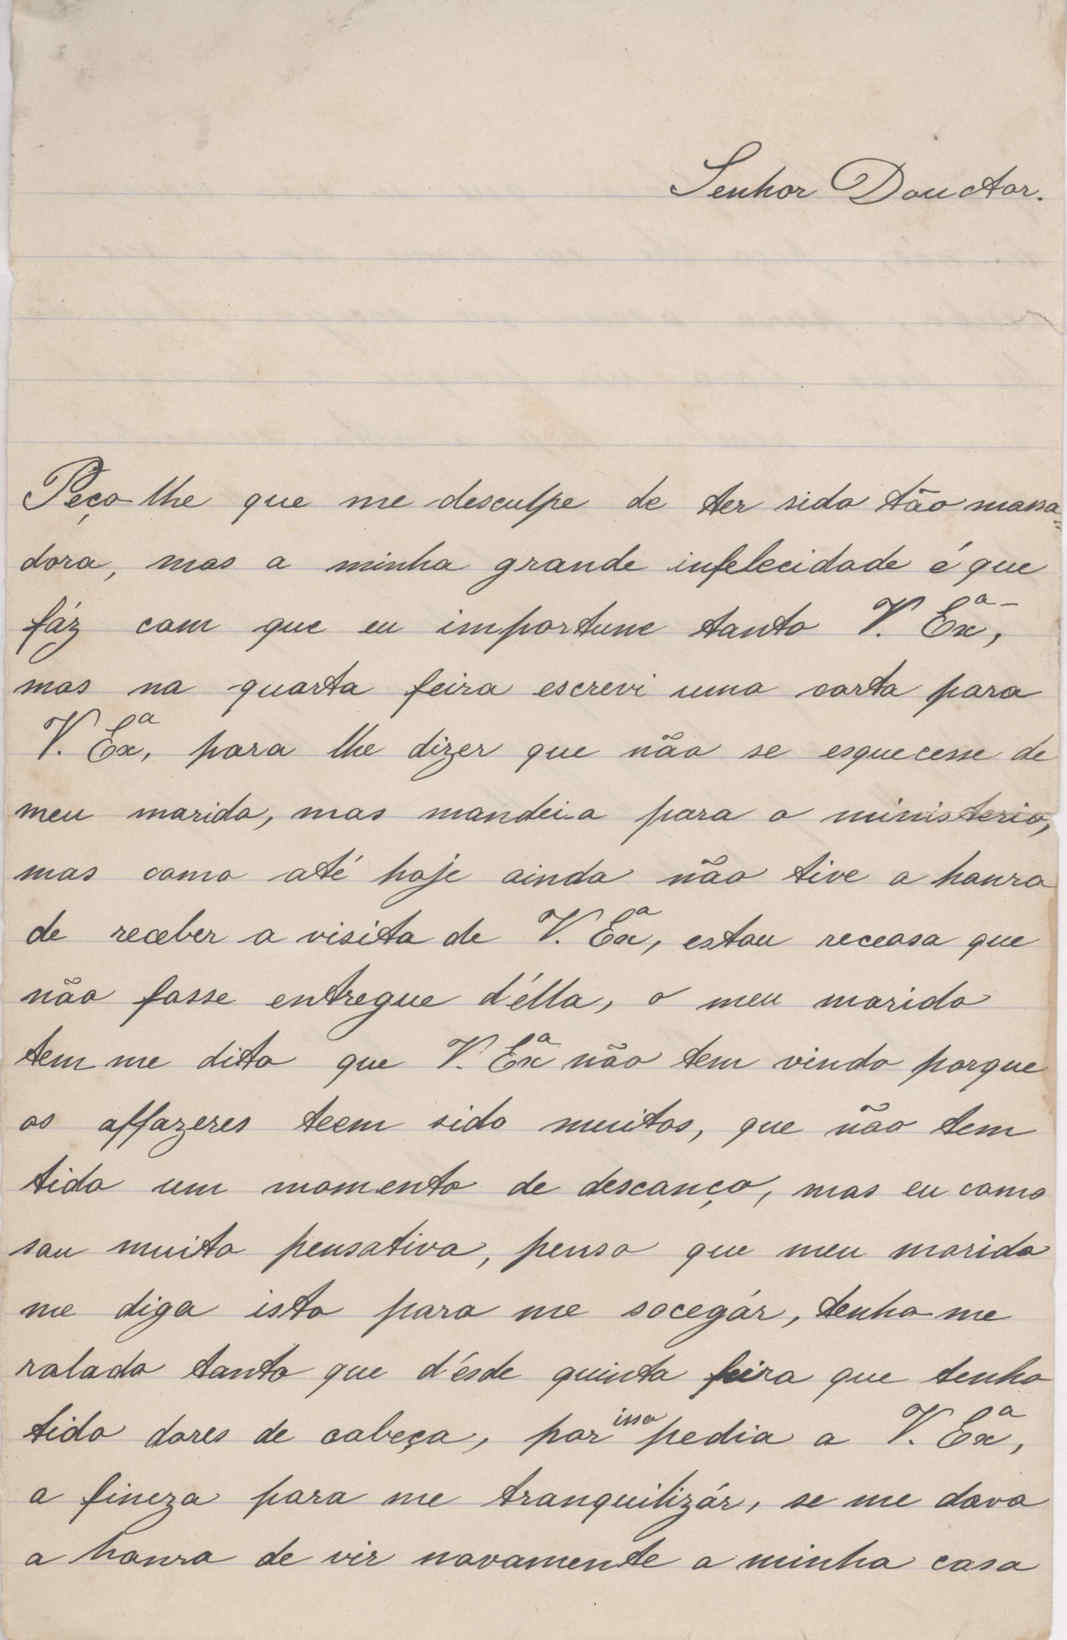 Senhor Douctor.
Peço-lhe que me desculpe de ter sido tão massa=
dora, mas a minha grande infelecidade é que
fáz com que eu importune tanto V. Exª,
mas na quarta feira escrevi uma carta para
V. Exª, para lhe dizer que não se esquecesse de
meu marido, mas mandei-a para o ministerio,
mas como até hoje ainda não tive a honra
de receber a visita de V. Exª, estou receosa que
não fosse entregue d'élla, o meu marido
tem-me dito que V. Exª não tem vindo porque
os affazeres teem sido muitos, que não tem
tido um momento de descanço, mas eu como
sou muito pensativa, penso que meu marido
me diga isto para me socegár, tenho-me
ralado tanto que d'ésde quinta feira que tenho
tido dores de cabeça, por isso pedia a V. Exª,
a fineza para me tranquilizár, se me dava
a honra de vir novamente a minha casa